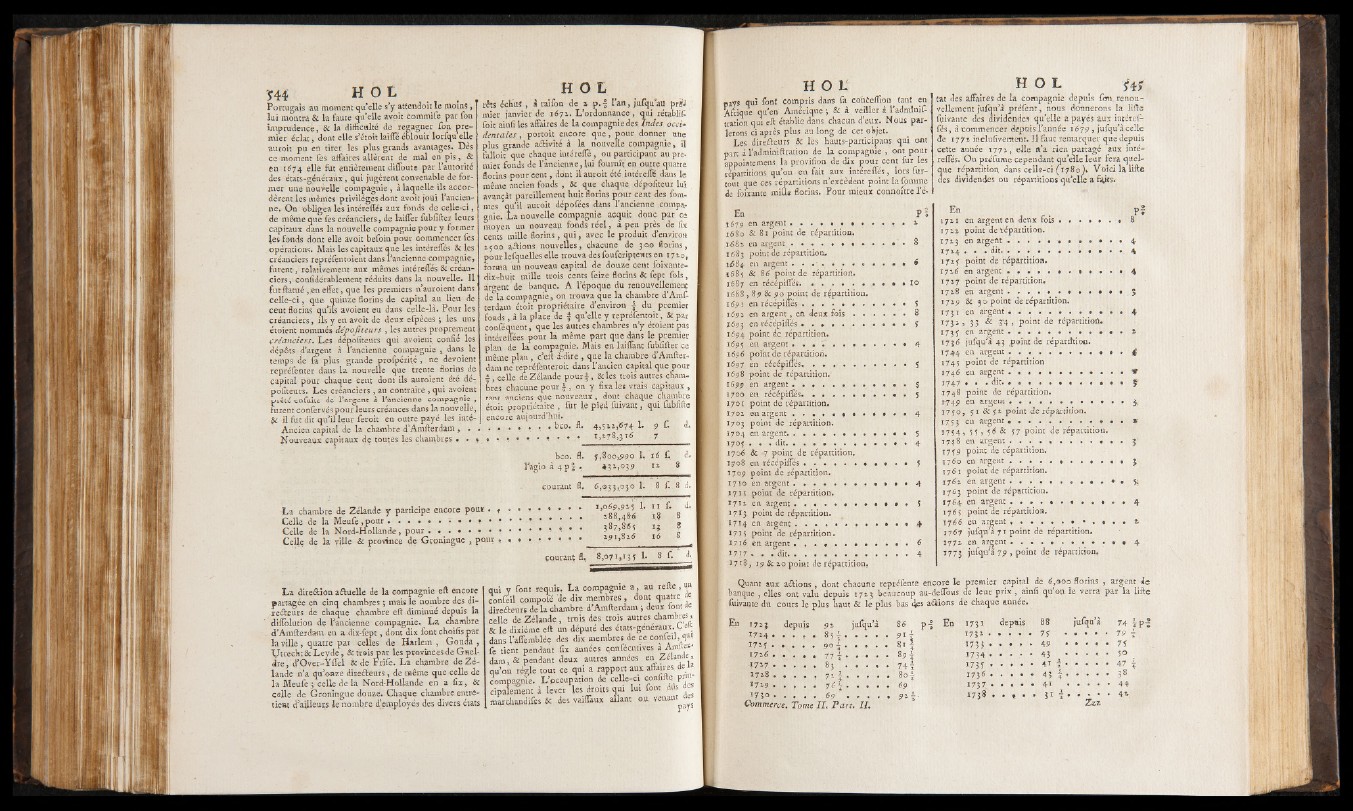 544 H O L
Portugais au moment qu'elle s'y attendoit le moins,
lui montra & la faute qu'elle avoit commise par son
imprudence, & la difficulté de regagner son pre-
mier éclat, dont elle s'étoit laissé éblouir lorsqu'elle
auroit pu en tirer les plus grands avantages. Dès
ce moment ses affaires allèrent de mal en pis, &
en 1674 elle fut entiérement dissoute par l'autorité
des états-généraux, qui jugèrent convenable de for-
mer une nouvelle compagnie, à laquelle ils accor-
dèrent les mêmes priviléges dont avoit joui l'ancien-
ne. On obligea les intéressés aux fonds de celle-ci,
de même que ses créanciers, de laisser subsister leurs
capitaux dans la nouvelle compagnie pour y former
les fonds dont elle avoit besoin pour commencer ses
opérations. Mais les capitaux que les intéressés & les
créanciers représentoient dans l'ancienne compagnie,
furent, relativement aux mêmes intéressés & créan-
ciers, considérablement réduits dans la nouvelle. Il
fut statué, en effet, que les premiers n'auroient dans
celle-ci, que quinze florins de capital au lieu de
cent florins qu'ils avoient eu dans celle-là. Pour les
créanciers, ils y en avoit de deux espèces; les uns
étoient nommés dépositeurs, les autres proprement
créanciers. Les dépositeurs qui avoient confié les
dépôts d'argent à l'ancienne compagnie, dans le
temps de sa plus grande prospérité, ne devoient
représenter dans la nouvelle que trente florins de
capital pour chaque cent dont ils auroient été dé-
positeurs. Les créanciers, au contraire, qui avoient
prêté ensuite de l'argent à l'ancienne compagnie,
furent conservés pour leurs créances dans la nouvelle,
& il fut dit qu'il leur seroit en outre payé les inté-
H O L
rêts échus, à raison de 2 p. % l'an, jusqu'au pre-
mier janvier de 1672. L'ordonnance, qui rétablis-
soit ainsi les affaires de la compagnie des Indes occi-
dentales, portoit encore que, pour donner une
plus grande activité à la nouvelle compagnie, il
falloit que chaque intéressé, ou participant au pre-
mier fonds de l'ancienne, lui fournît en outre quatre
florins pour cent, dont il auroit été intéressé dans le
même ancien fonds, & que chaque dépositeur lui
avançât pareillement huit florins pour cent des som-
mes qu'il auroit déposées dans l'ancienne compa-
gnie. La nouvelle compagnie acquit donc par ce
moyen un nouveau fonds réel, à peu près de six
cents mille florins, qui, avec le produit d'environ
1500 actions nouvelles, chacune de 300 florins,
pour lesquelles elle trouva des souscripteurs en 1720,
forma un nouveau capital de douze cent soixante-
dix-huit mille trois cents seize florins & sept sols,
argent de banque. A l'époque du renouvellement
de la compagnie, on trouva que la chambre d'Ams-
terdam étoit propriétaire d'environ du premier
fonds, à la place de qu'elle y représentoit, & par
conséquent, que les autres chambres n'y étoient pas
intéressées pour la même part que dans le premier
plan de la compagnie. Mais en laissant subsister ce
même plan, c'est-à-dire, que la chambre d'Amster-
dam ne représenteroit dans l'ancien capital que pour
, celle de Zélande pour , & les trois autres cham-
bres chacune pour , on y fixa les vrais capitaux,
tant anciens que nouveaux, dont chaque chambre
étoit propriétaire, sur le pied suivant, qui subsiste
encore aujourd'hui.
Ancien capital de la chambre d'Amsterdam, . . . . . . . . . bco. fl. 4,522,674 l. 9 s. d.
Nouveaux capitaux de toutes les chambres . . . . . . . . . . 1,278,316 7
bco. fl. 5,800,990 l. 16 s. d.
l'agio à 4 p % . 232,039 12 8
courant fl. 6,033,030 l. 8 s. 8 d.
La chambre de Zélande y participe encore pour . . . . . . . . . 1,069,925 l. 11 s. d.
Celle de la Meuse, pour . . . . . . . . . . . . . . . . . 288,486 18 8
Celle de la Nord-Hollande, pour . . . . . . . . . . . . . . 387,865 13 8
Celle de la ville & province de Groningue, pour . . . . . . . . . 291,826 16 8
courant fl. 8,071,135 l. 8 s. d.
La direction actuelle de la compagnie est encore
partagée en cinq chambres; mais le nombre des di-
recteurs de chaque chambre est diminué depuis la
dissolution de l'ancienne compagnie. La chambre
d'Amsterdam en a dix-sept, dont dix sont choisis par
la ville, quatre par celles de Harlem, Gouda,
Utrecht & Leyde, & trois par les provinces de Guel-
dre, d'Over-Yssel & de Frise. La chambre de Zé-
lande n'a qu'onze directeurs, de même que celle de
la Meuse; celle de la Nord-Hollande en a six, &
celle de Groningue douze. Chaque chambre entre-
tient d'ailleurs le nombre d'employés des divers états
qui y sont requis. La compagnie a, au reste, un
conseil composé de dix membres, dont quatre de
directeurs de la chambre d'Amsterdam; deux sont de
celle de Zélande, trois des trois autres chambres,
& le dixième est un député des états-généraux. C'est
dans l'assemblée des dix membres de ce conseil, qui
se tient pendant six années consécutives à Amster-
dam, & pendant deux autres années en Zélande,
qu'on régle tout ce qui a rapport aux affaires de la
compagnie. L'occupation de celle-ci consiste prin-
cipalement à lever les droits qui lui sont dûs des
marchandises & des vaisseaux allant ou venant des
pays
H O L
pays qui sont compris dans sa concession tant en
Afrique qu'en Amérique; & à veiller à l'adminis-
tration qui est établie dans chacun d'eux. Nous par-
lerons ci après plus au long de cet objet.
Les directeurs & les hauts-participans qui ont
part à l'administration de la compagnie, ont pour
appointemens la provision de dix pour cent sur les
répartitions qu'on en fait aux intéressés, lors sur-
tout que ces répartitions n'excèdent point la somme
de soixante mille florins. Pour mieux connoître l'é-
H O L 545
tat des affaires de la compagnie depuis son renou-
vellement jusqu'à présent, nous donnerons la liste
suivante des dividendes qu'elle a payés aux intéres-
sés, à commencer depuis l'année 1679, jusqu'à celle
de 1772 inclusivement. Il faut remarquer que depuis
cette année 1772, elle n'a rien partagé aux inté-
ressés. On présume cependant qu'elle leur fera quel-
que répartition dans celle-ci (1780). Voici la liste
des dividendes ou répartitions qu'elle a faites.
En p %
1679 en argent . . . . . . . . . . 2
1680 & 81 point de répartition.
1682 en argent . . . . . . . . . . 8
1683 point de répartition.
1684 en argent . . . . . . . . . . 6
1685 & 86 point de répartition.
1687 en récépisses. . . . . . . . . . 10
1688, 89 & 90 point de répartition.
1691 en récépisses . . . . . . . . . . 5
1692 en argent, en deux fois . . . . . . 8
1693 en récépisses . . . . . . . . . . 5
1694 point de répartition.
1695 en argent . . . . . . . . . . 4
1696 point de répartition.
1697 en récépisses. . . . . . . . . . 5
1698 point de répartition.
1699 en argent . . . . . . . . . . 5
1700 en récépisses. . . . . . . . . . 5
1701 point de répartition.
1702 en argent . . . . . . . . . . 4
1703 point de répartition.
1704 en argent. . . . . . . . . . . 5
1705 . . . dit. . . . . . . . . . . 4
1706 & 7 point de répartition.
1708 en récépisses . . . . . . . . . . 5
1709 point de répartition.
1710 en argent . . . . . . . . . . 4
1711 point de répartition.
1712 en argent . . . . . . . . . . 5
1713 point de répartition.
1714 en argent . . . . . . . . . . 4
1715 point de répartition.
1716 en argent . . . . . . . . . . 6
1717 . . . dit. . . . . . . . . . . 4
1718, 19 & 20 point de répartition.
En p %
1721 en argent en deux fois . . . . . . . 8
1722 point de répartition.
1723 en argent . . . . . . . . . . 4
1724 . . . dit. . . . . . . . . . . 4
1725 point de répartition.
1726 en argent . . . . . . . . . . 4
1727 point de répartition.
1728 en argent . . . . . . . . . . 3
1729 & 30 point de répartition.
1731 en argent . . . . . . . . . . 4
1732, 33 & 34, point de répartition.
1735 en argent . . . . . . . . . . 2
1736 jusqu'à 43 point de répartition.
1744 en argent . . . . . . . . . .
1745 point de répartition
1746 en argent . . . . . . . . . .
1747 . . . dit. . . . . . . . . . .
1748 point de répartition.
1749 en argent . . . . . . . . . . 3
1750, 51 & 52 point de répartition.
1753 en argent . . . . . . . . . . 2
1754, 55, 56 & 57 point de répartition.
1758 en argent . . . . . . . . . . 3
1759 point de répartition.
1760 en argent . . . . . . . . . . 3
1761 point de répartition.
1762 en argent . . . . . . . . . .
1763 point de répartition.
1764 en argent . . . . . . . . . . 4
1765 point de répartition.
1766 en argent . . . . . . . . . . 2
1767 jusqu'à 71 point de répartition.
1772 en argent . . . . . . . . . . 4
1773 jusqu'à 79, point de répartition.
Quant aux actions, dont chacune représente encore le premier capital de 6,000 florins, argent de
banque, elles ont valu depuis 1723 beaucoup au-dessous de leur prix, ainsi qu'on le verra par la liste
suivante du cours le plus haut & le plus bas des actions de chaque année.
En 1723 depuis 92 jusqu'à 86 p %
1724 . . . . . 85 ½ . . . . . 91 ½
1725 . . . . . 90 . . . . . 81
1726 . . . . . 77 . . . . . 89
1727 . . . . . 83 . . . . . 74
1728 . . . . . 72 . . . . . 80
1729 . . . . . 76 . . . . . 69
1730 . . . . . 69 . . . . . 92
En 1731 depuis 88 jusqu'à 74 ½ p %
1732 . . . . . 75 . . . . . 79
1733 . . . . . 49 . . . . . 75
1734 . . . . . 43 . . . . . 50
1735 . . . . . 41 . . . . . 47
1736 . . . . . 43 . . . . . 38
1737 . . . . . 41 . . . . . 44
1738 . . . . . 31 . . . . . 42
Commerce. Tome II. Part. II. Zzz